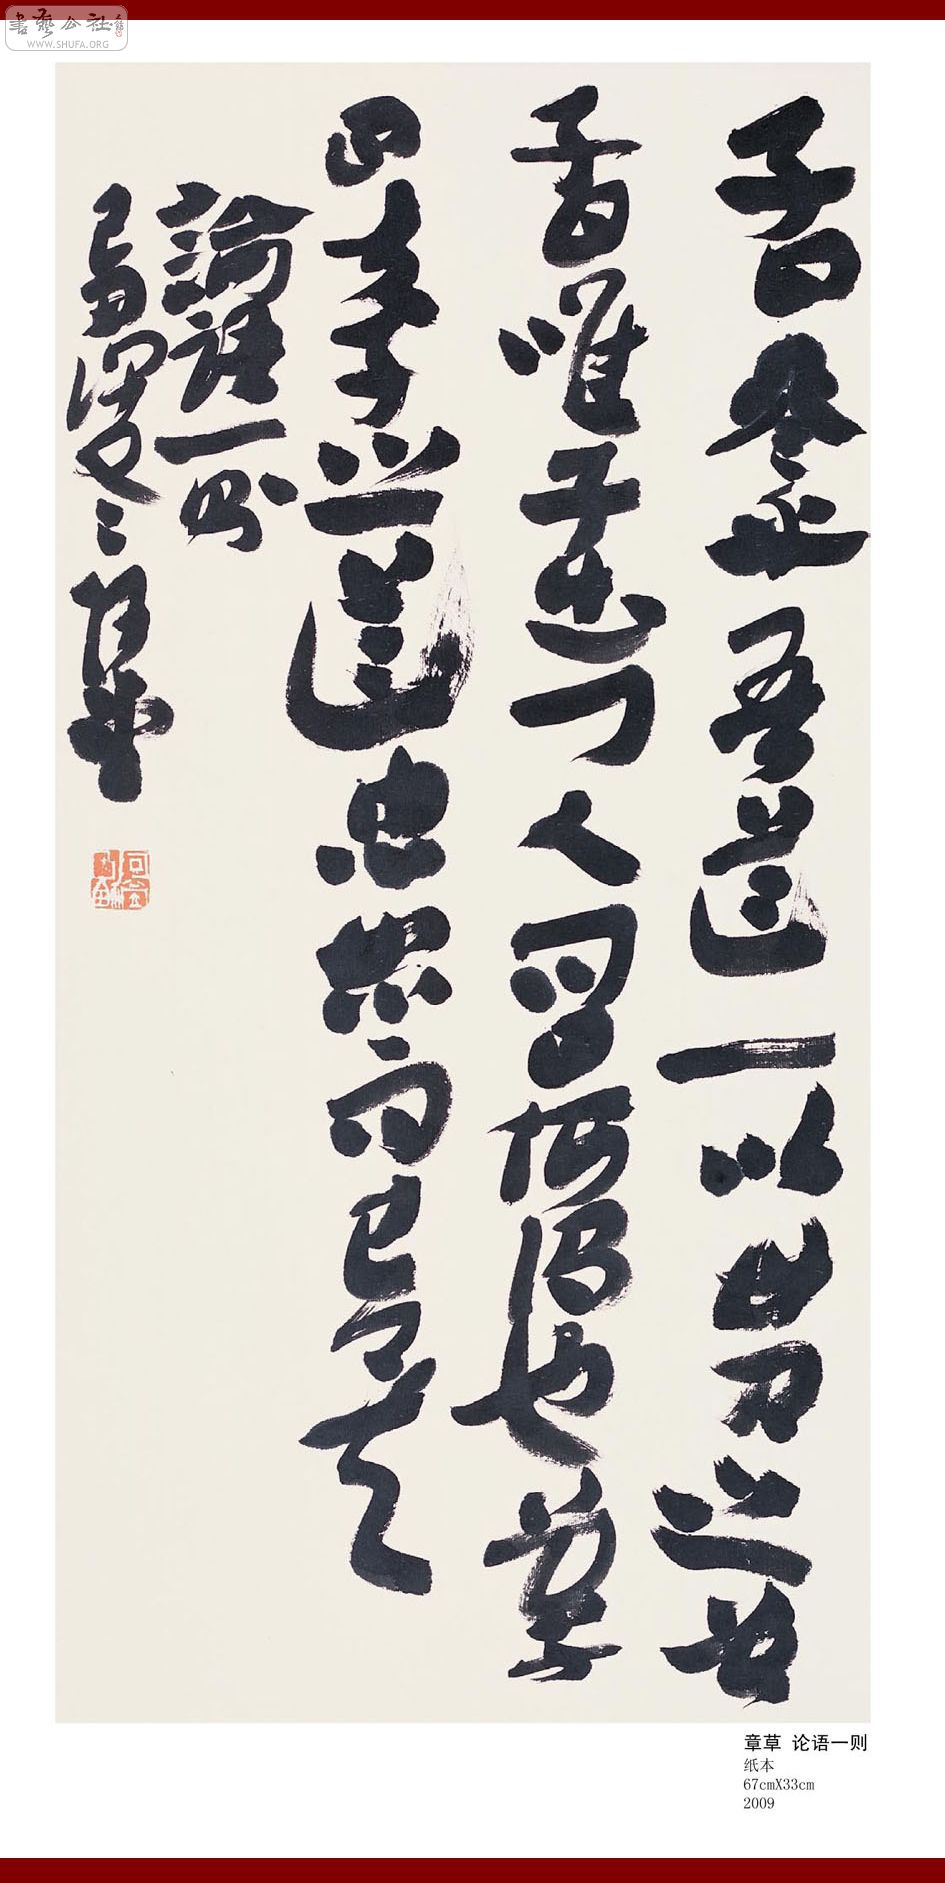 書藝公社
WWW.SHUFA.ORG
子曰參乎吾道一以貫之曾
子曰唯子出門人問曰何謂也曾子
曰夫子之道忠恕而已矣
論語一則
章草 论语一则
纸本
67cmX33cm
2009